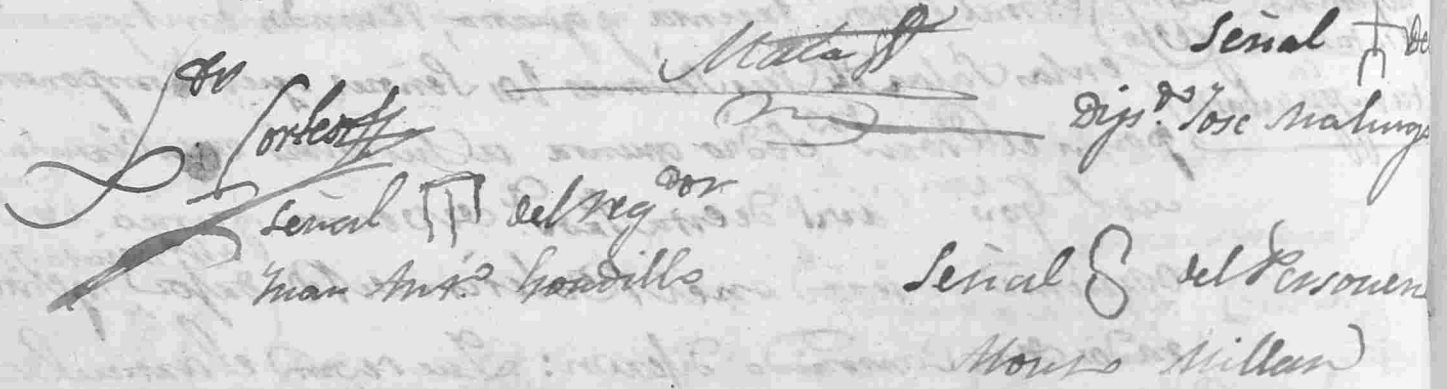 Mata
Señal de
Dip.do Jose
Cortes
Señal del reg.dor
Juan Ant.o Gordillo
Señal del Personero
Alonso Millan